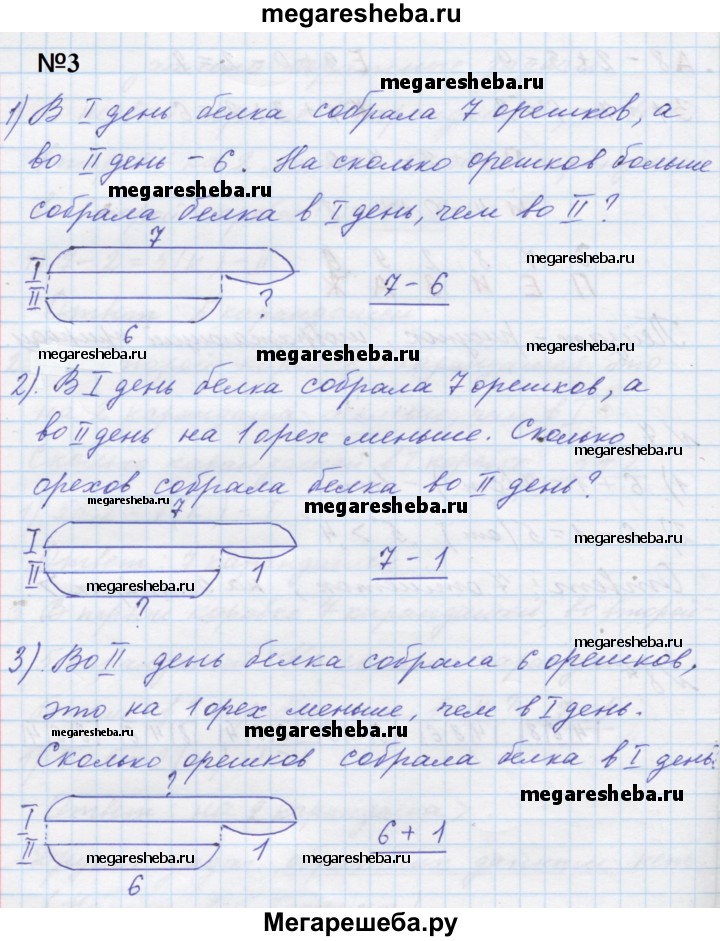 megaresheba.ru
№3
megaresheba.ru
1) В I день белка собрала 7 орешков, а
во II день - 6. На сколько орешков больше
megaresheba.ru
megaresheba.ru
собрала белка в I день, чем во II?
7
I
II
?
7 - 6
6
megaresheba.ru
megaresheba.ru
megaresheba.ru
2). В I день белка собрала 7 орешков, а
во II день на 1 орех меньше. Сколько
megaresheba.ru
орехов собрала белка во II день?
megaresheba.ru
megaresheba.ru
7
I
II
1
7 - 1
megaresheba.ru
megaresheba.ru
?
megaresheba.ru
3). Во II день белка собрала 6 орешков,
megaresheba.ru
это на 1 орех меньше, чем в I день.
megaresheba.ru
megaresheba.ru
Сколько орешков собрала белка в I день.
?
megaresheba.ru
I
II
1
6 + 1
megaresheba.ru
megaresheba.ru
megaresheba.ru
6
Мегарешеба.ру